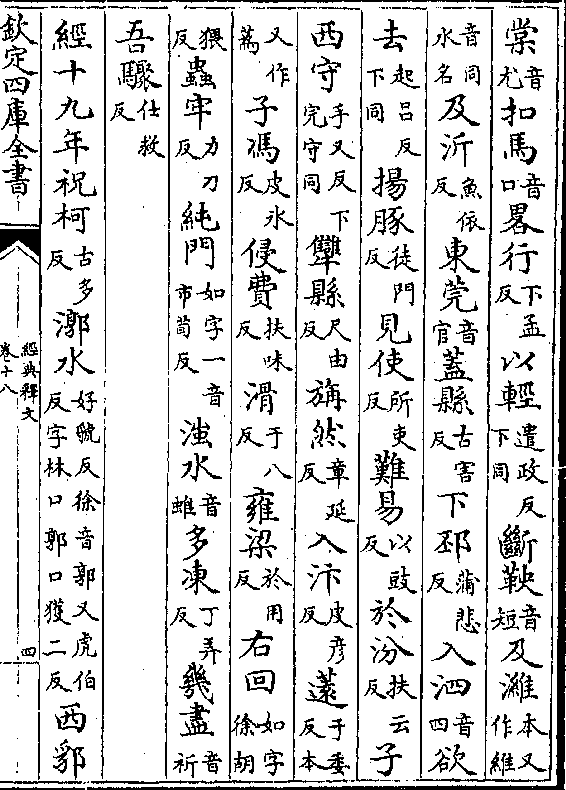 棠音尤扣馬音口畧行下孟反以輕遣政反下同斷鞅音短及濰本又作維
音同水名及沂魚依反東莞音官蓋縣古害反下邳蒲悲反入泗音四欲
去起呂反下同揚豚徒門反見使所吏反難易以豉反於汾扶云反子
西守手又反下完守同犫縣尺由反旃然章延反入汴皮彦反薳于委反本
又作蒍子馮皮氷反侵費扶味反滑于八反雍梁於用反右回如字徐胡
猥反蟲牢力刀反純門如字一音市荀反滍水音蜼多凍丁弄反幾盡音祈
吾驟仕救反
經十九年祝柯古多反漷水好虢反徐音郭又虎伯反字林口郭口獲二反西郛
欽定四庫全書
經典釋文
卷十八
四